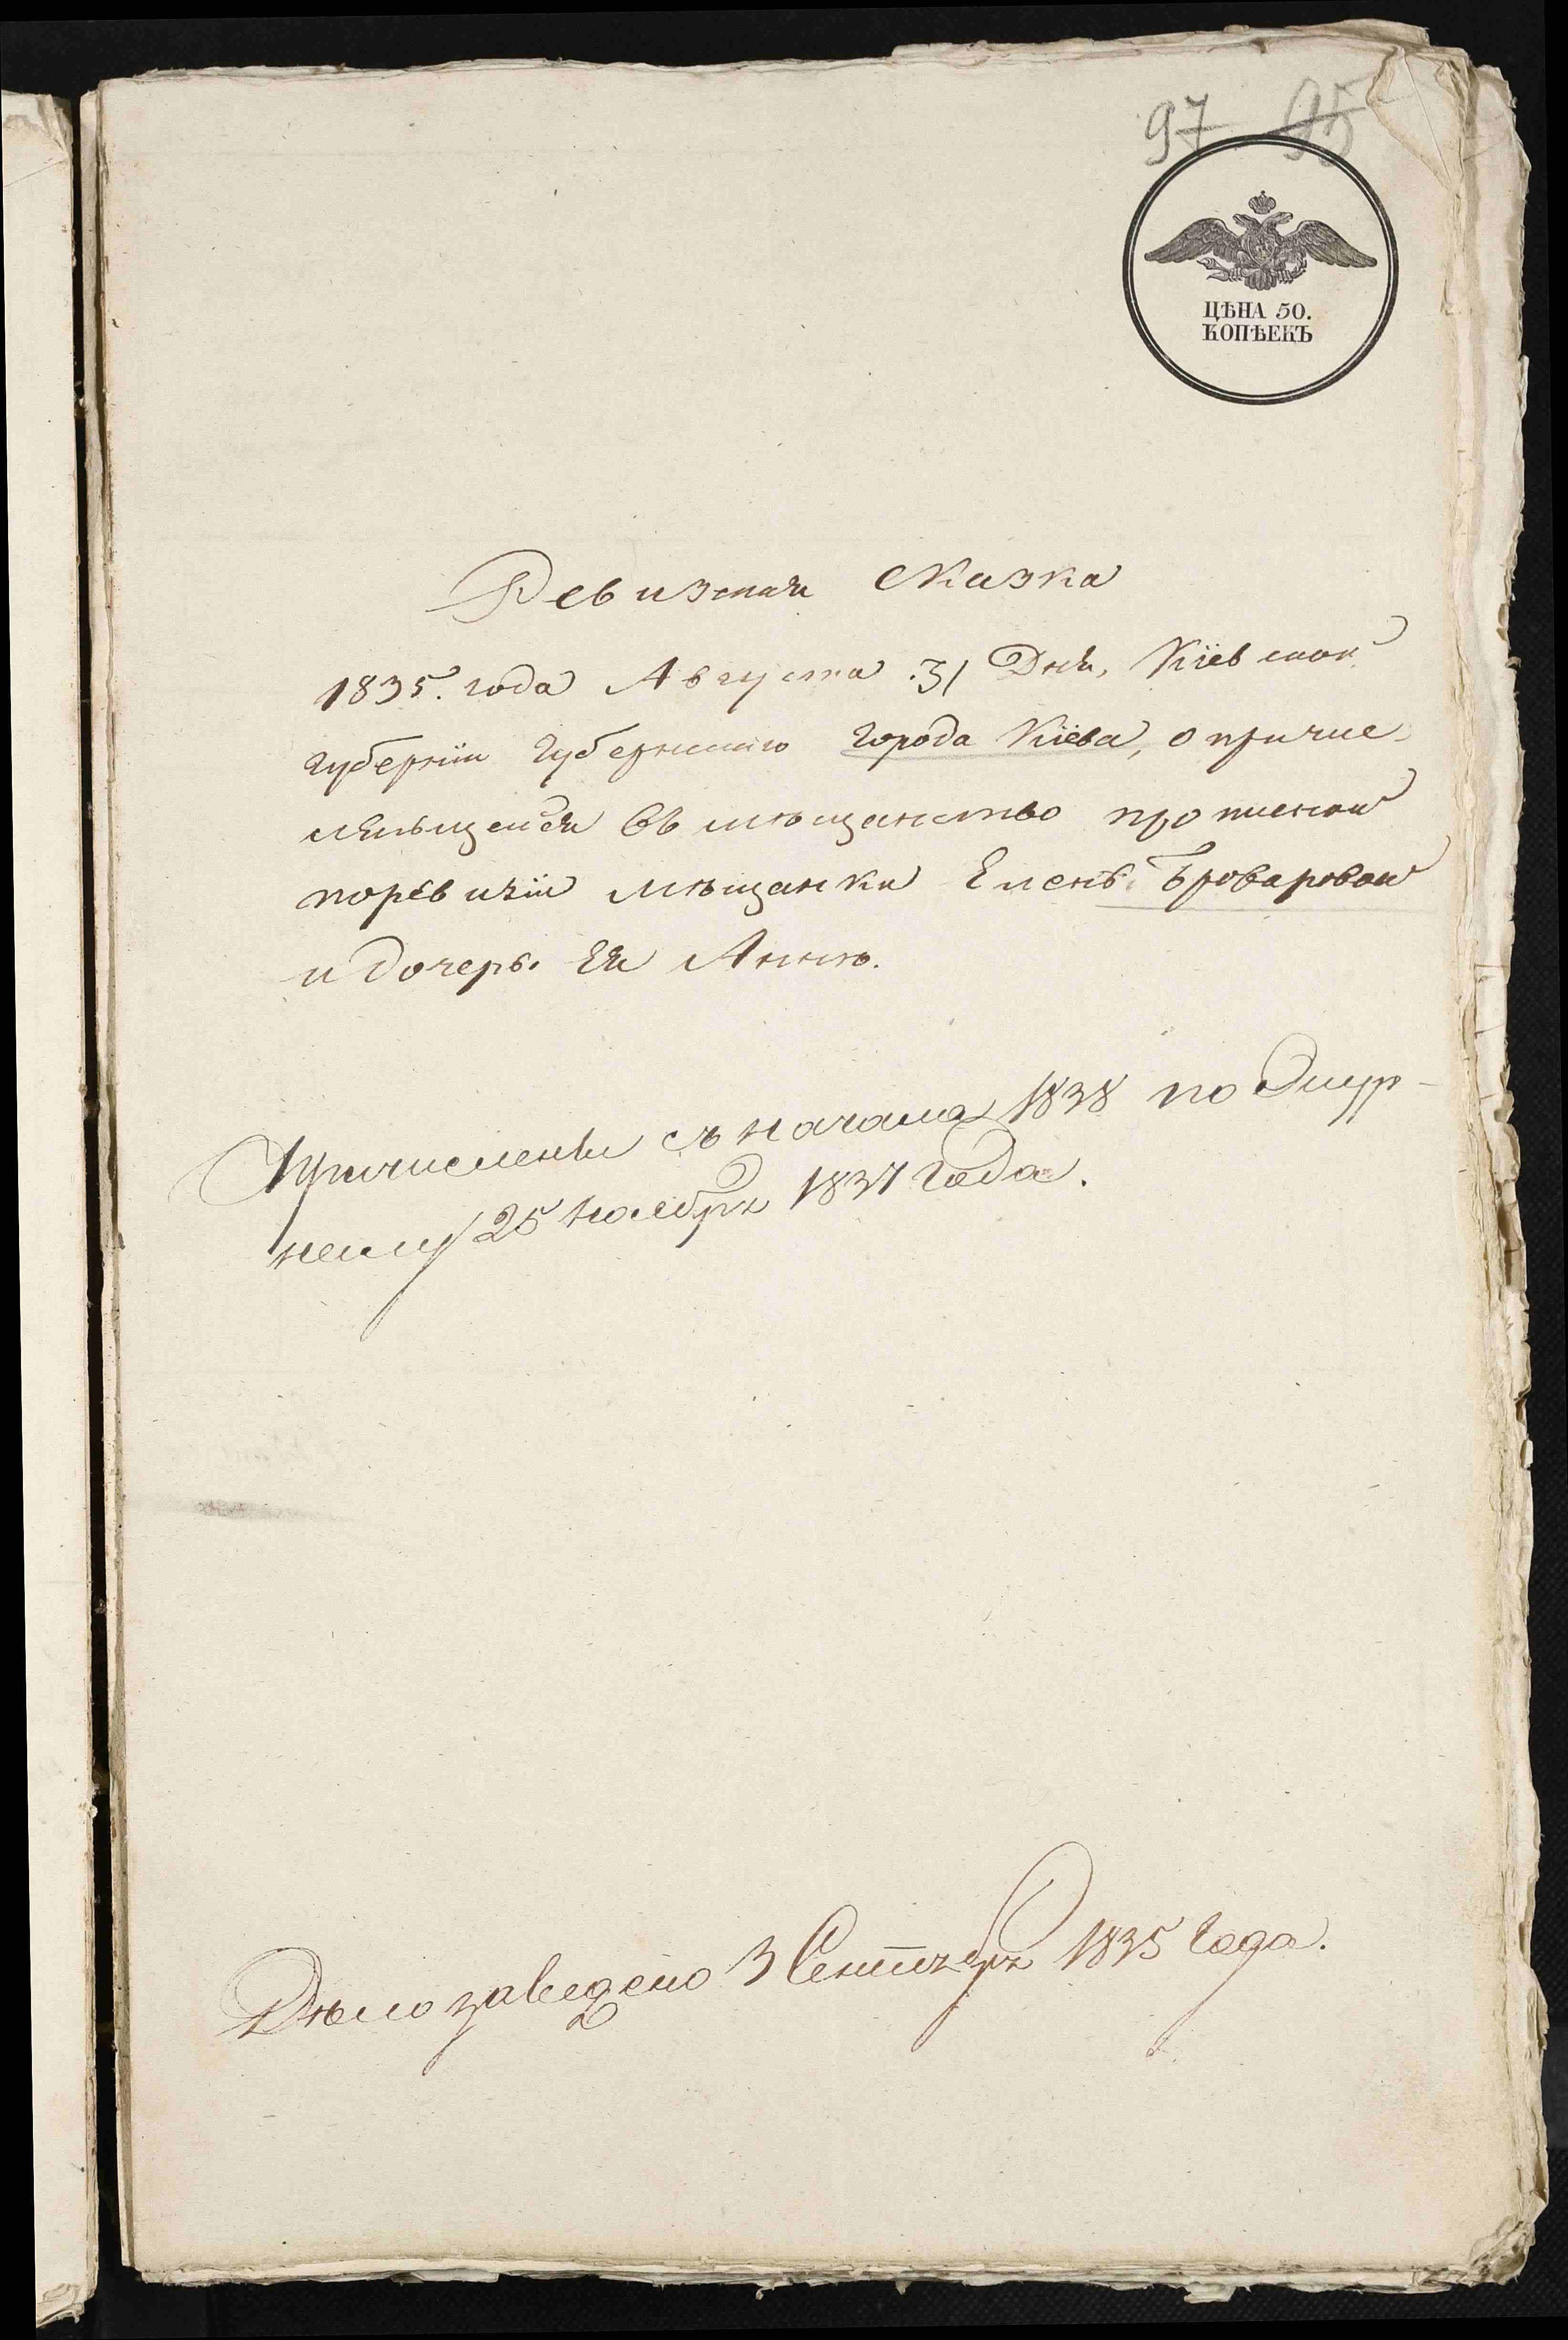 97 95
ЦѢНА 50.
КОПѢЕКЪ
Ревизкая сказка
1835. года Августа 31 Дня, Кіевской
губерніи Губернскаго города Кіева, о причис-
лѣвшейся въ мѣщанство
поревизіи мѣщанки Еленѣ Броваровой
и дочерѣ Ея Аннѣ.
Причислены съ начала 1838 по Опур-
нему 25 Ноября 1837 года.
Дѣло заведено 3 Сентября 1835 Года.